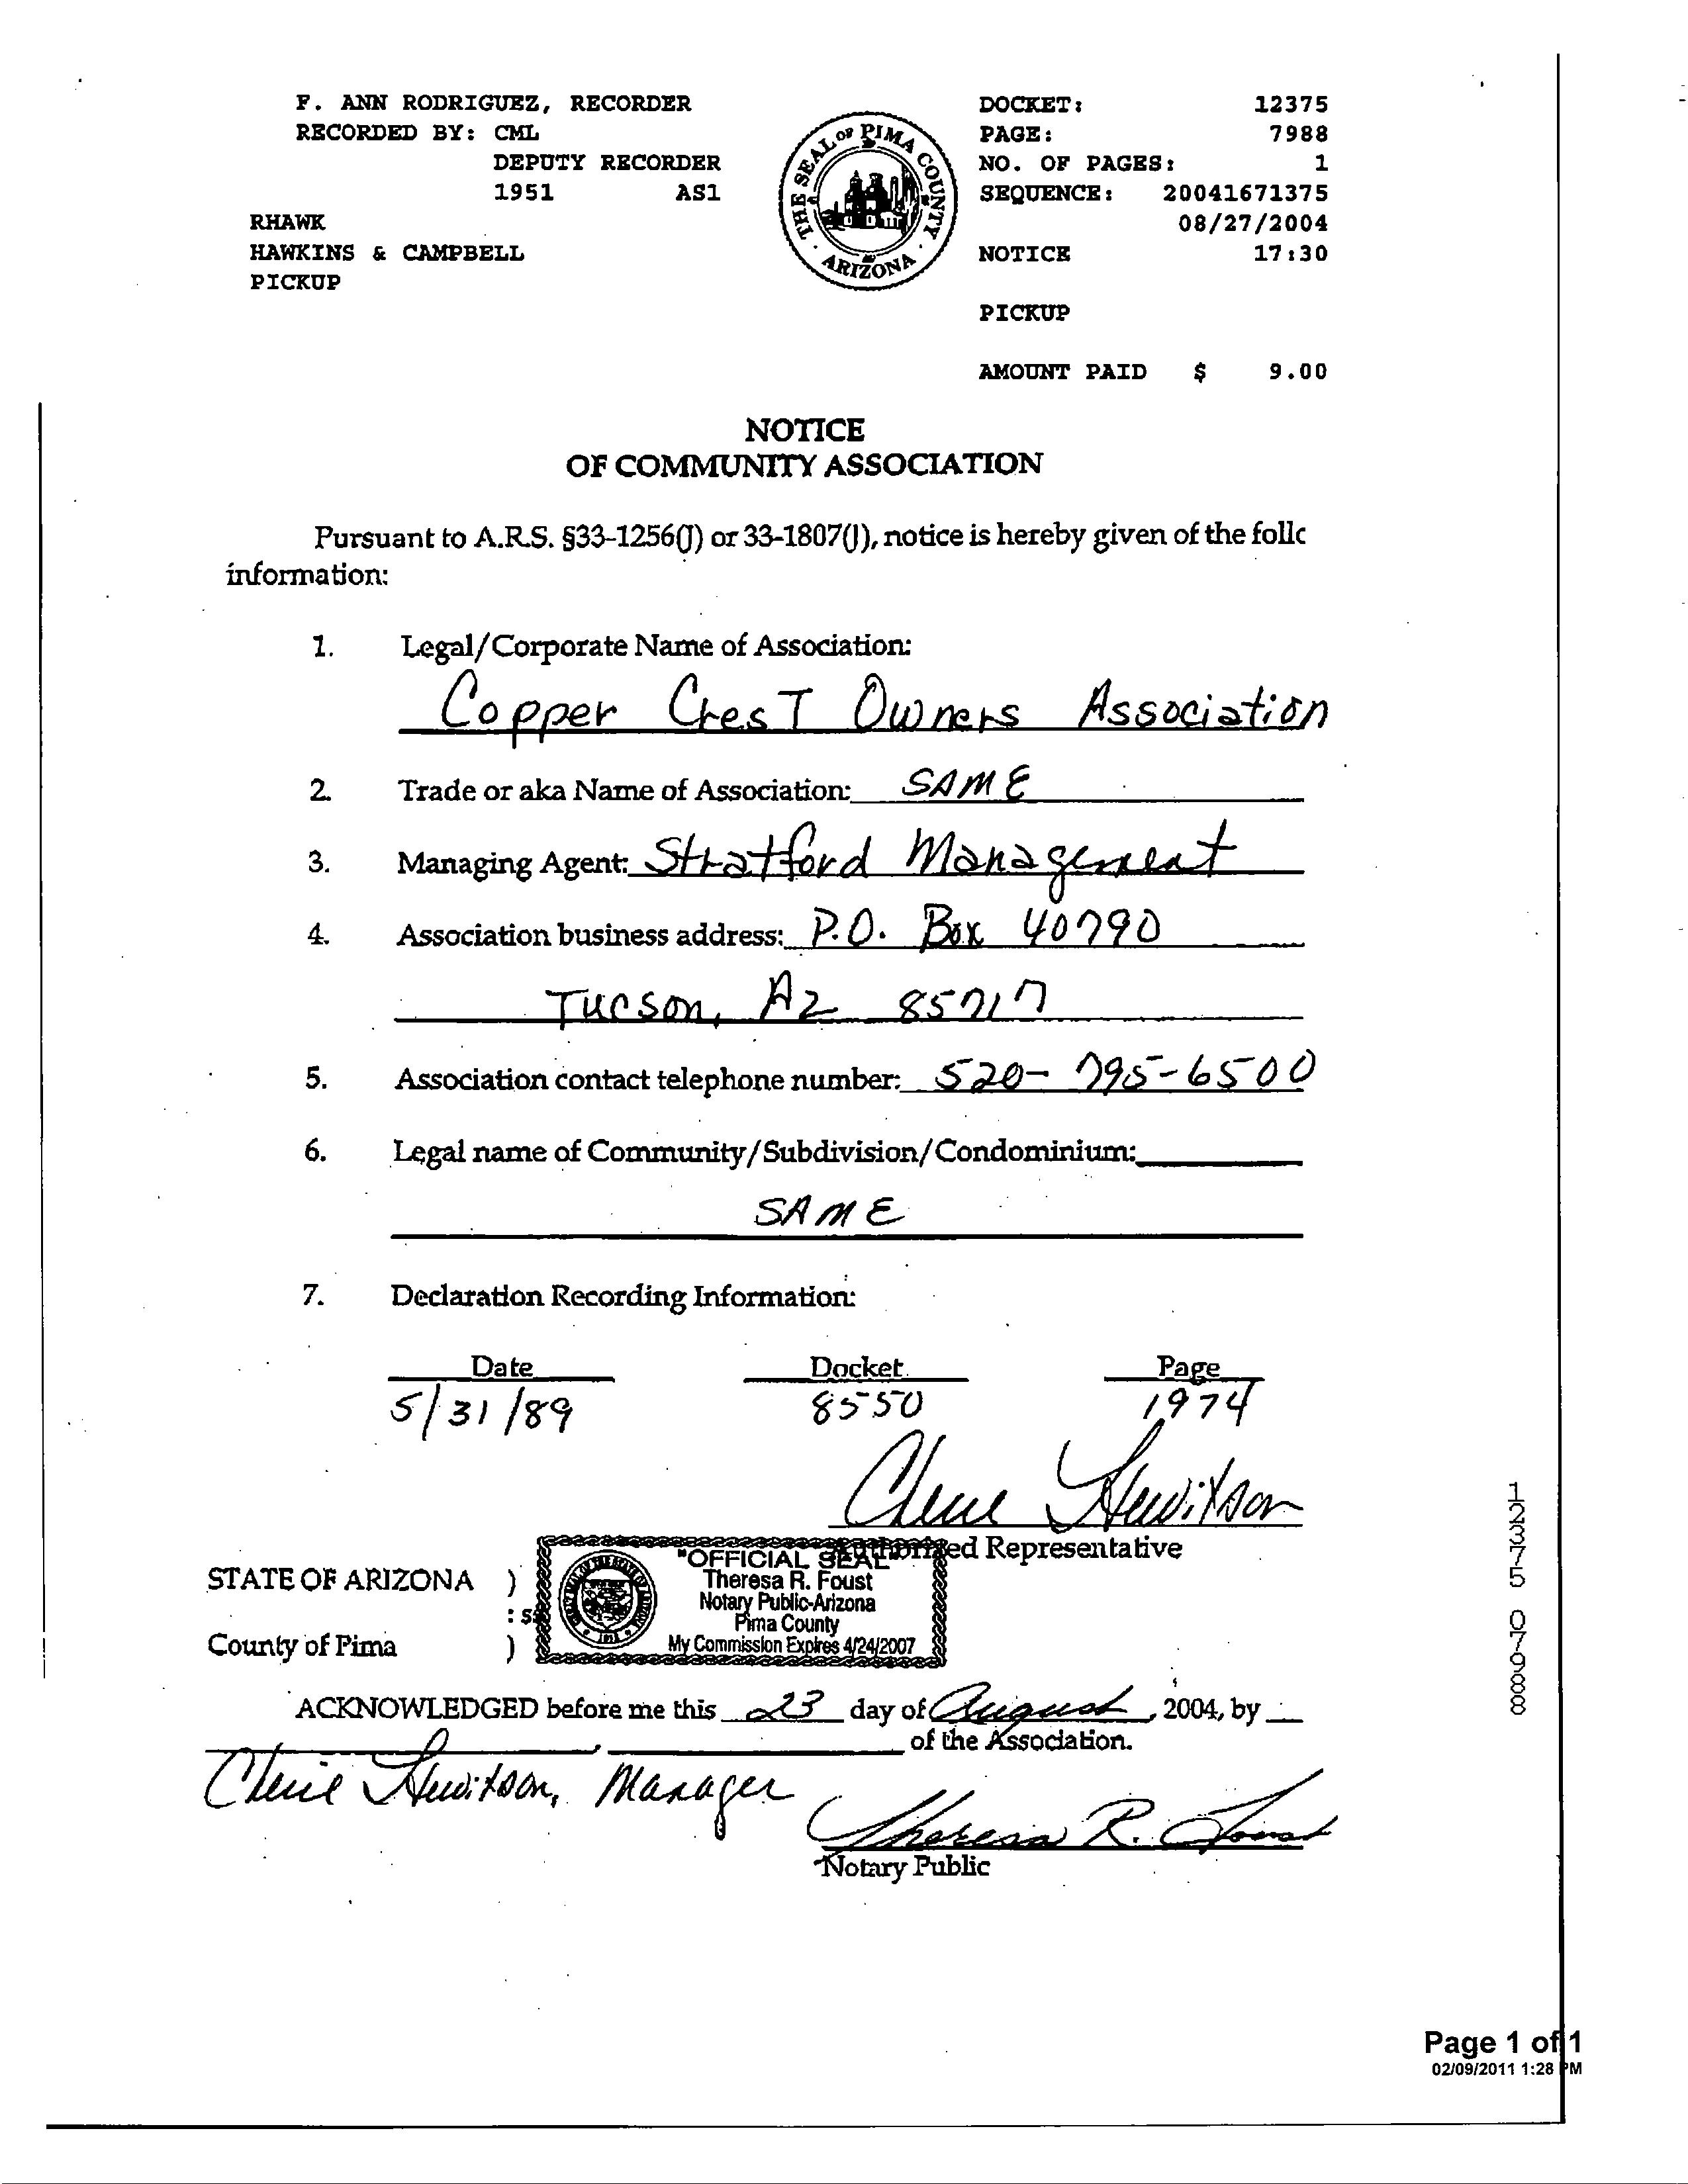 F. ANN RODRIGUEZ, RECORDER
RECORDED BY: CML
DEPUTY RECORDER
1951 AS1
RHAWK
HAWKINS & CAMPBELL
PICKUP
THE SEAL OF PIMA COUNTY
ARIZONA
DOCKET: 12375
PAGE: 7988
NO. OF PAGES: 1
SEQUENCE: 20041671375
08/27/2004
NOTICE 17:30
PICKUP
AMOUNT PAID $ 9.00
NOTICE
OF COMMUNITY ASSOCIATION
Pursuant to A.R.S. §33-1256(J) or 33-1807(J), notice is hereby given of the follc
information:
1. Legal/Corporate Name of Association:
Copper CresT Owners Association
2. Trade or aka Name of Association: SAME
3. Managing Agent: Stratford Management
4. Association business address: P.O. Box 40790
Tucson, Az 85717
5. Association contact telephone number: 520-795-6500
6. Legal name of Community/Subdivision/Condominium:
SAME
7. Declaration Recording Information:
Date Docket Page
5/31/89 8550 1974
Hewitson
Authorized Representative
"OFFICIAL SEAL"
Theresa R. Foust
Notary Public-Arizona
Pima County
My Commission Expires 4/24/2007
STATE OF ARIZONA )
: ss
County of Pima )
ACKNOWLEDGED before me this 23 day of August, 2004, by
, of the Association.
Hewitson, Manager
Theresa R. Foust
Notary Public
12375 07988
Page 1 of 1
02/09/2011 1:28 PM